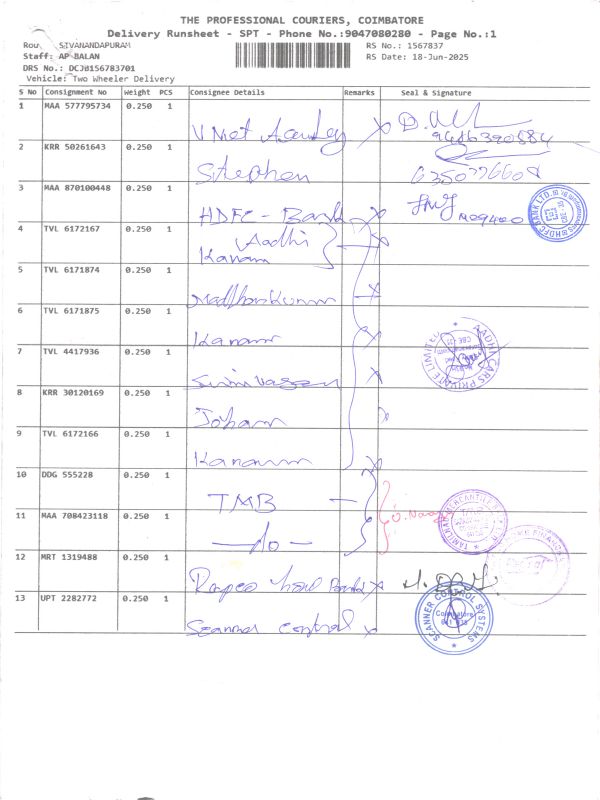 THE PROFESSIONAL COURIERS, COIMBATORE
Delivery Runsheet - SPT - Phone No.:9047080280 - Page No.:1
SIVANANDAPURAM RS No.: 1567837
Staff: AP BALAN RS Date: 18-Jun-2025
DRS No.: DCJB156783701
Vehicle: Two Wheeler Delivery
S No Consignment No Weight PCS Consignee Details Remarks Seal & Signature
1 MAA 577795734 0.250 1
2 KRR 50261643 0.250 1 Stephen
3 MAA 870100448 0.250 1 HDFC - Bank
HDFC BANK LTD.
4 TVL 6172167 0.250 1 Aadhi
Kanam
5 TVL 6171874 0.250 1
6 TVL 6171875 0.250 1 Kanam
7 TVL 4417936 0.250 1 Srinivasan
AADHI CARS PRIVATE LIMITED
8 KRR 30120169 0.250 1
9 TVL 6172166 0.250 1
10 DDG 555228 0.250 1 TMB
11 MAA 708423118 0.250 1 - do -
12 MRT 1319488 0.250 1
13 UPT 2282772 0.250 1 Scanner control
SCANNER CONTROL SYSTEMS
Coimbatore